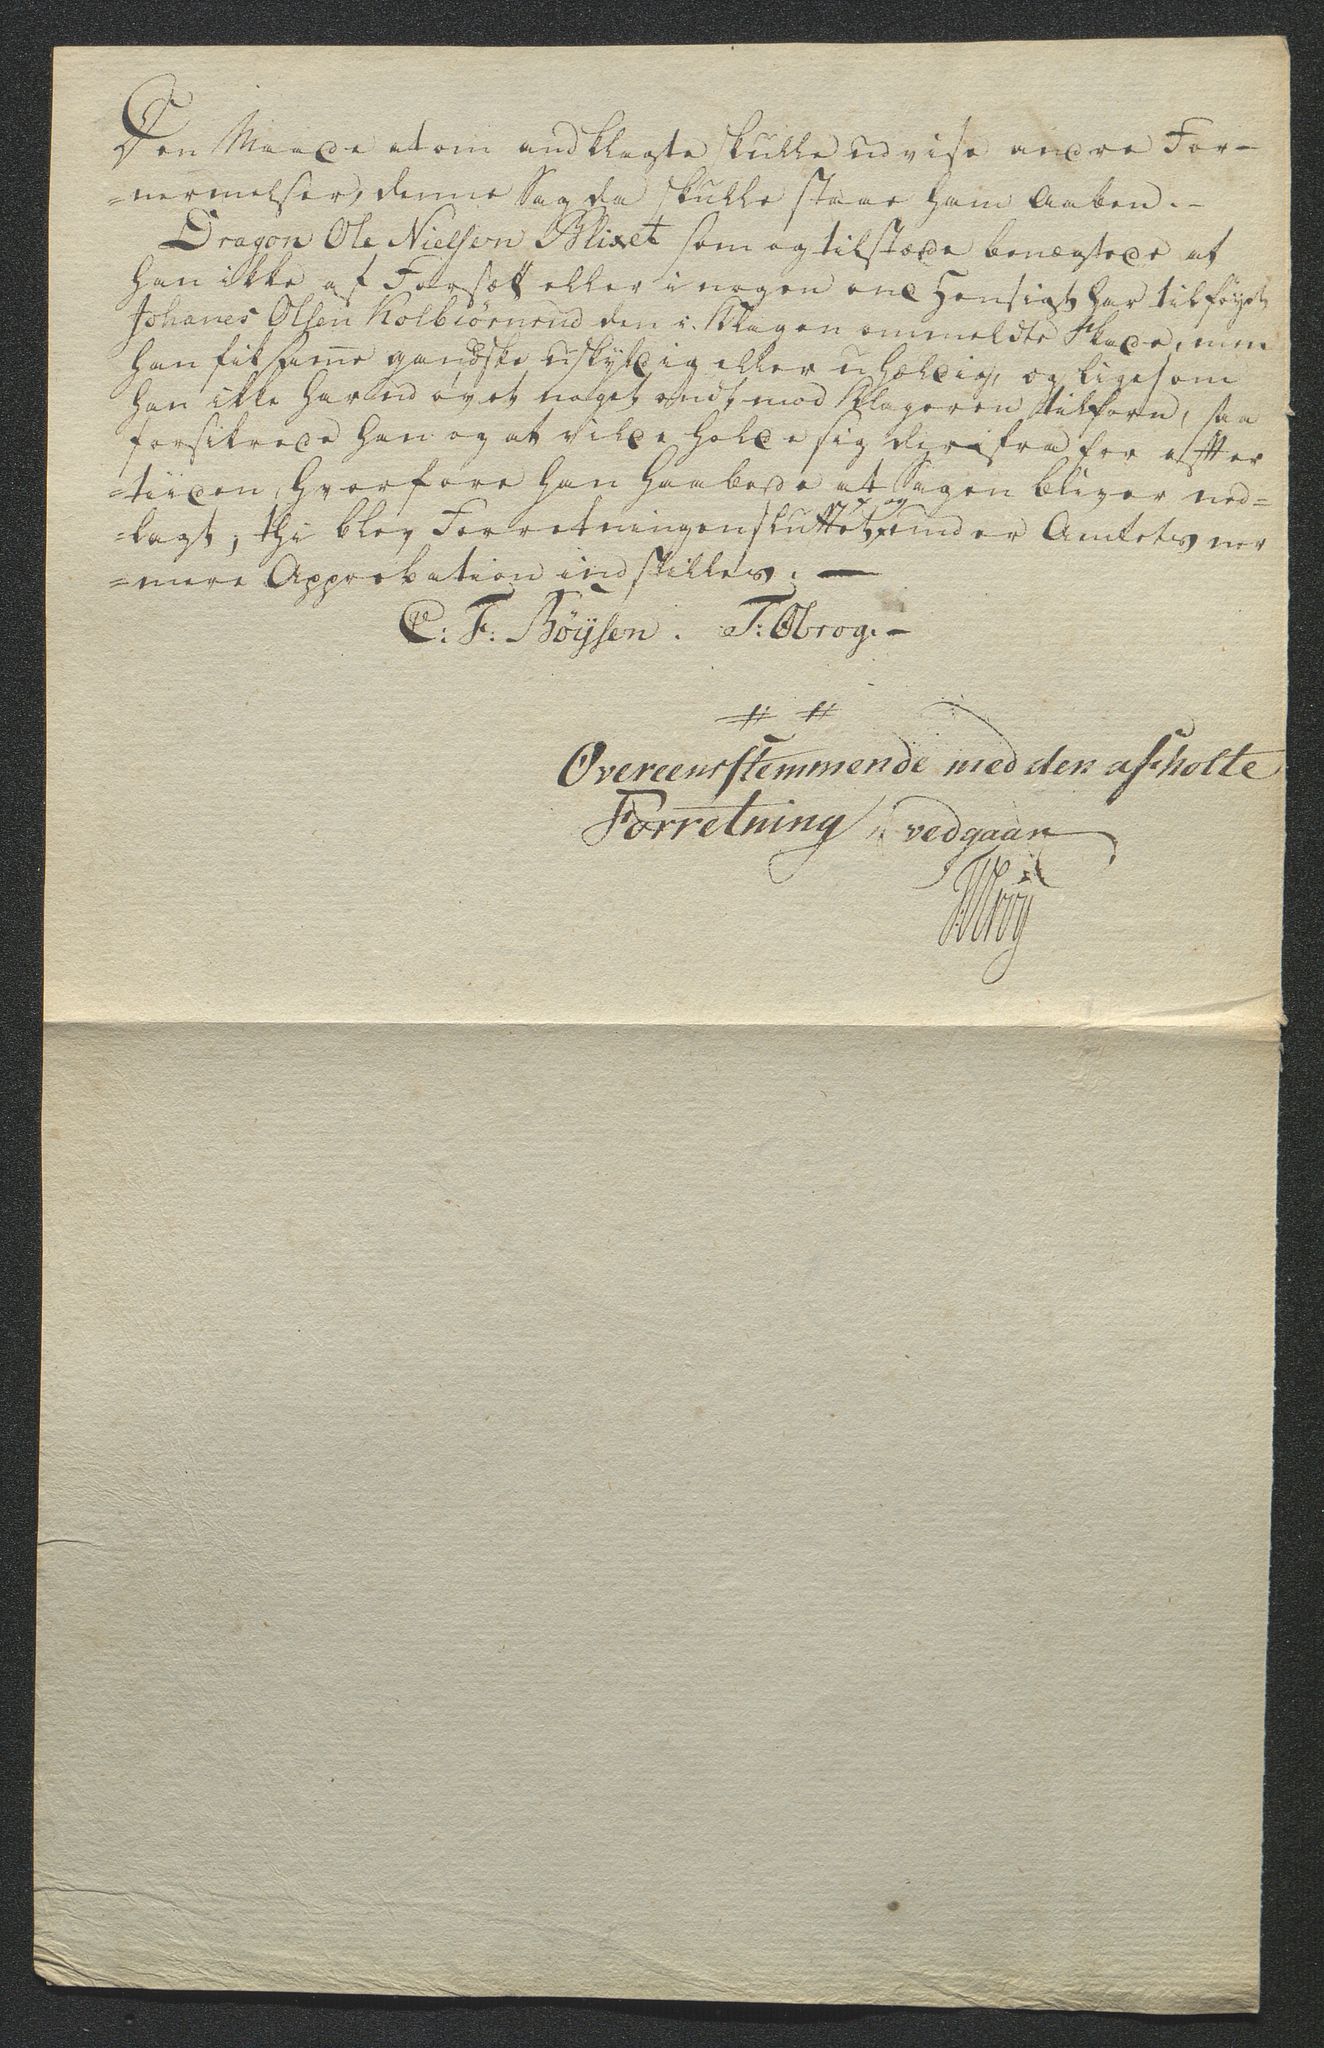 Den Maade at om andklagte skulle udvise andre For-
=nermelser, denne Sag da skulle staae ham Aaben. -
Dragon Ole Nielsen Blixet som og tilstæde benægtede at
han ikke af Forsætt eller i nogen ond Hensigt har tilføyet
Johanes Olsen Kolbiørnrud den i Klagen ommeldte Skade, men
han fik same gandske uskyldig eller uheldig, og ligesom
han ikke har udøvet noget ondt mod Klageren tilforn, saa
forsikrede han og at vilde holde sig derifra for after
=tiiden, hvorfore han haabede at Sagen bliver ned=
=lagt, thi blev Forretningen sluttet og under Amtets ner
=mere Approbation indstilles. —
C: F: Böÿsen. T: Obrog. -
Overeensstemmende med den afholte
Forretning, vedgaar